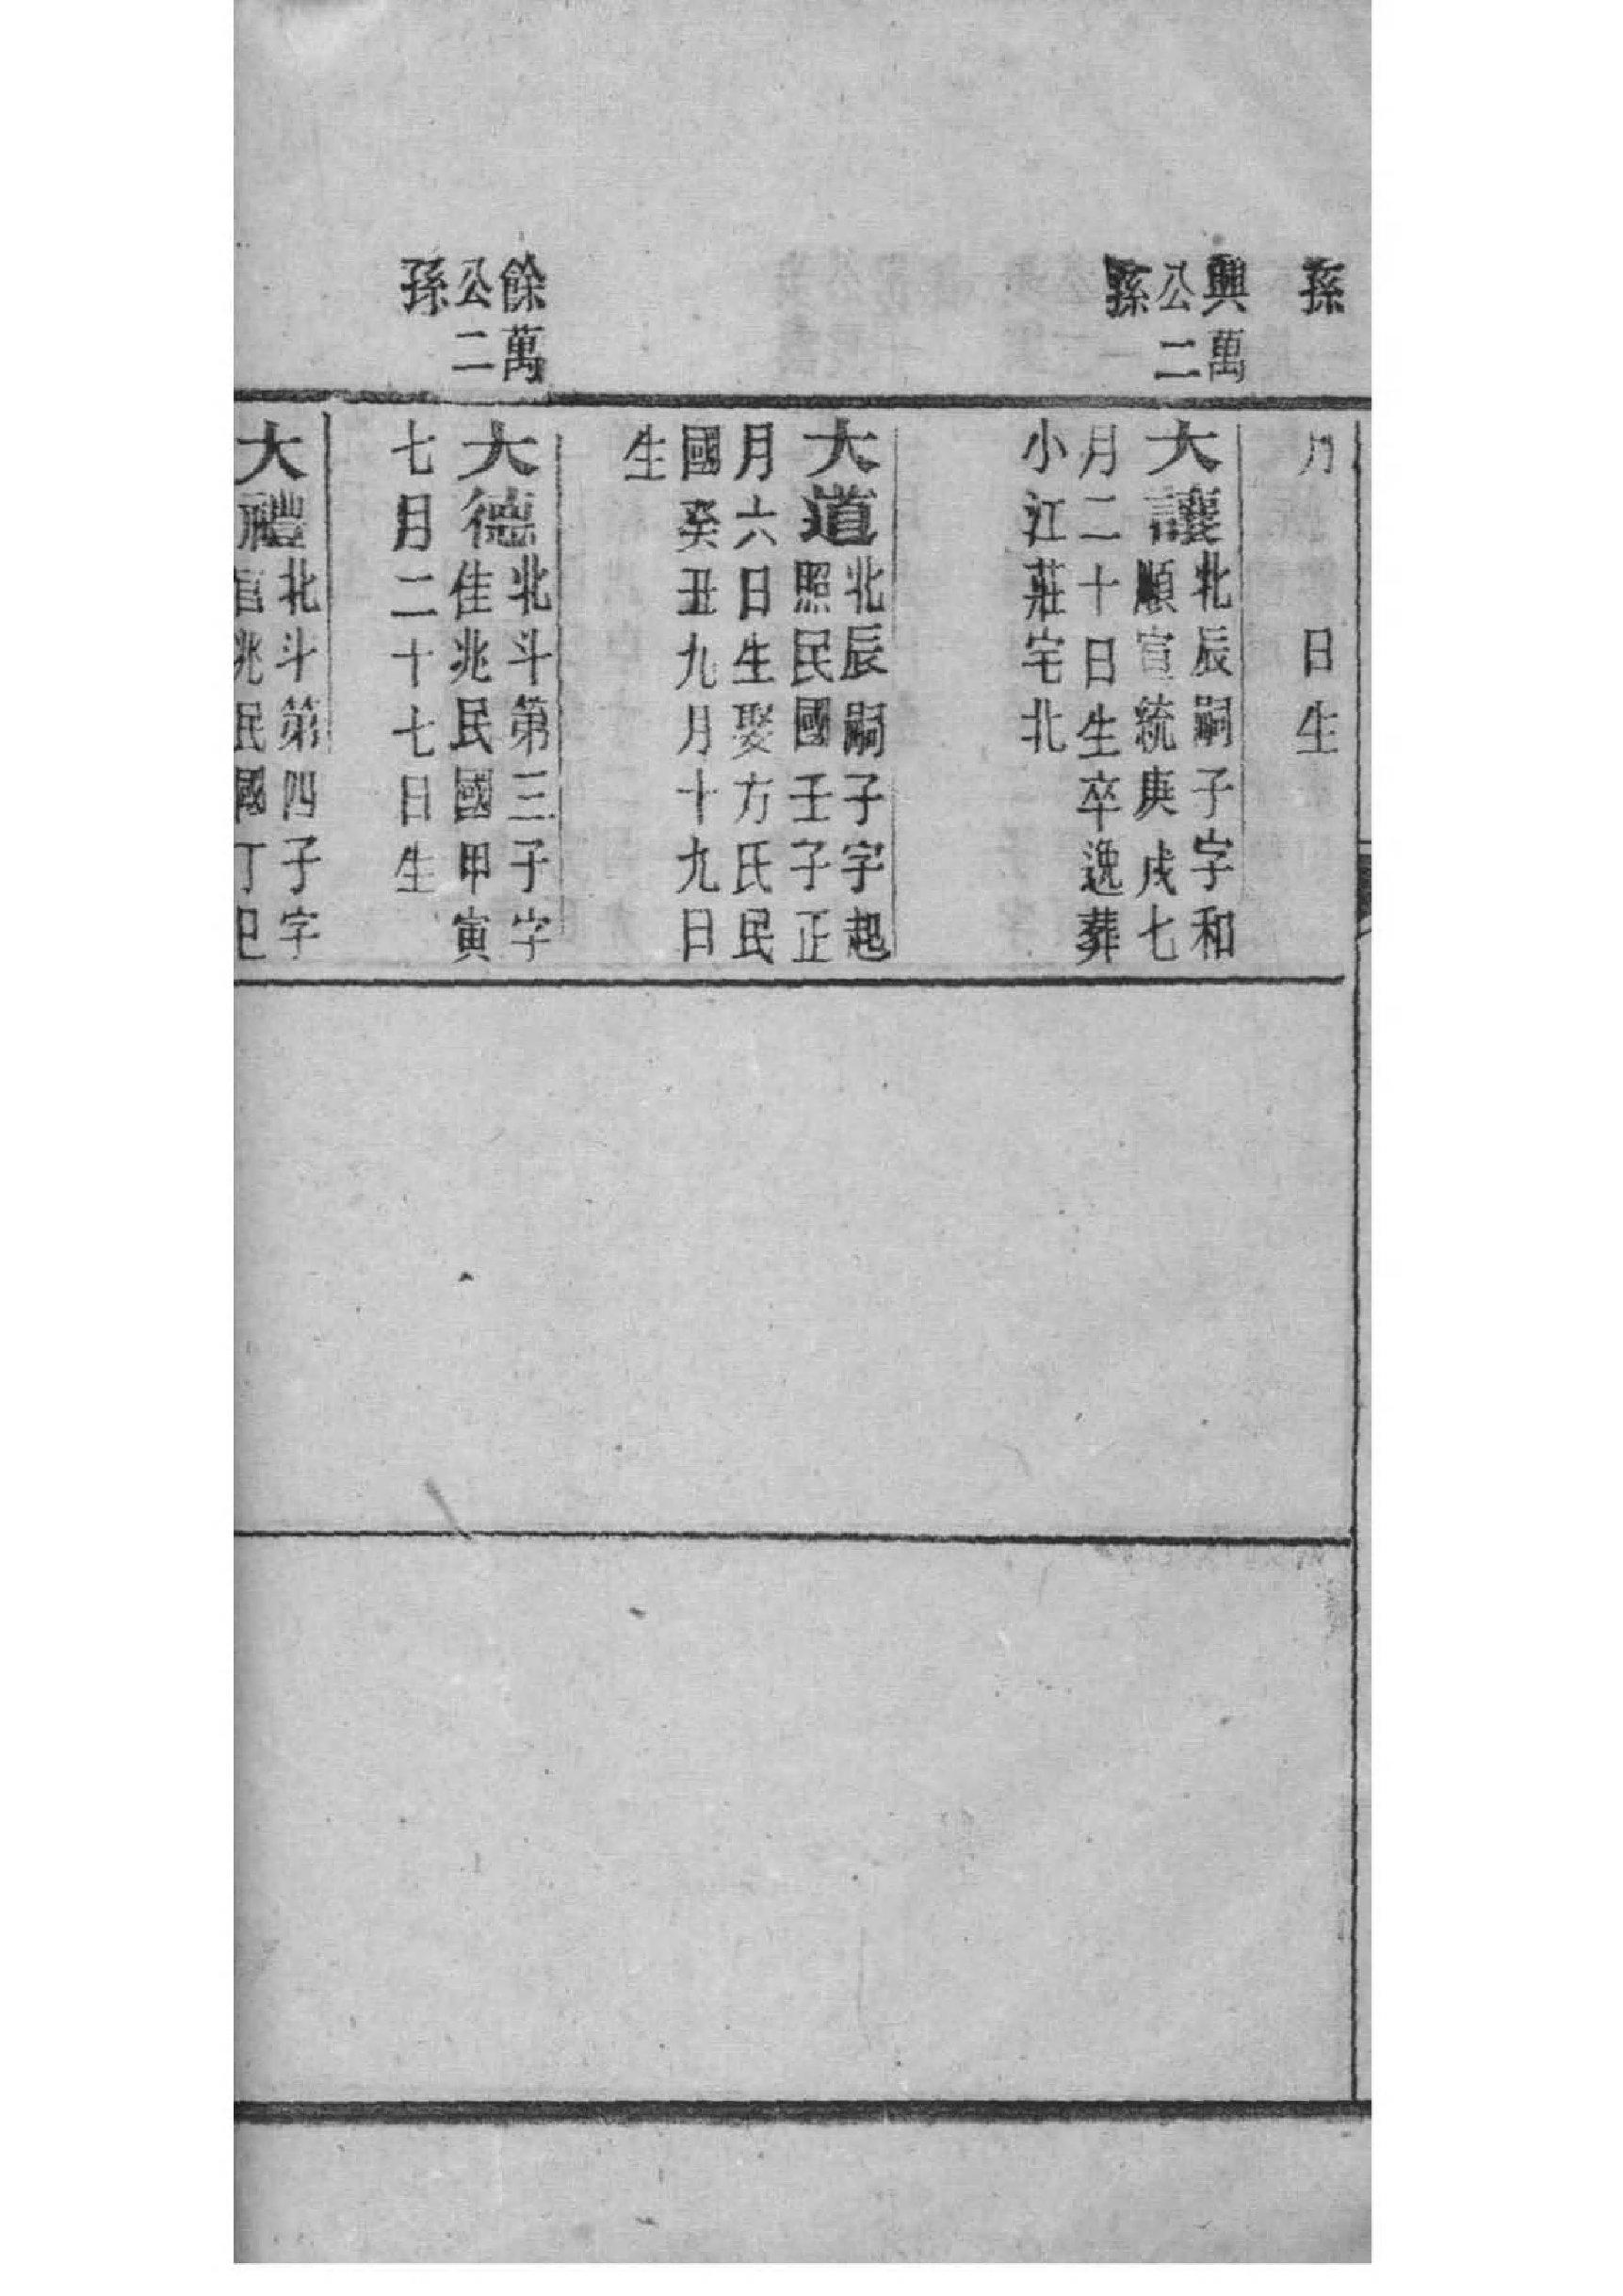 孫
興萬
公二
孫
餘萬
公二
孫
月　日生
大讓北辰嗣子字和
順宣統庚戌七
月二十日生卒逸葬
小江莊宅北
大道北辰嗣子字起
照民國壬子正
月六日生娶方氏民
國癸丑九月十九日
生
大德北斗第三子字
佳兆民國甲寅
七月二十七日生
大禮北斗第四子字
兆民國丁巳